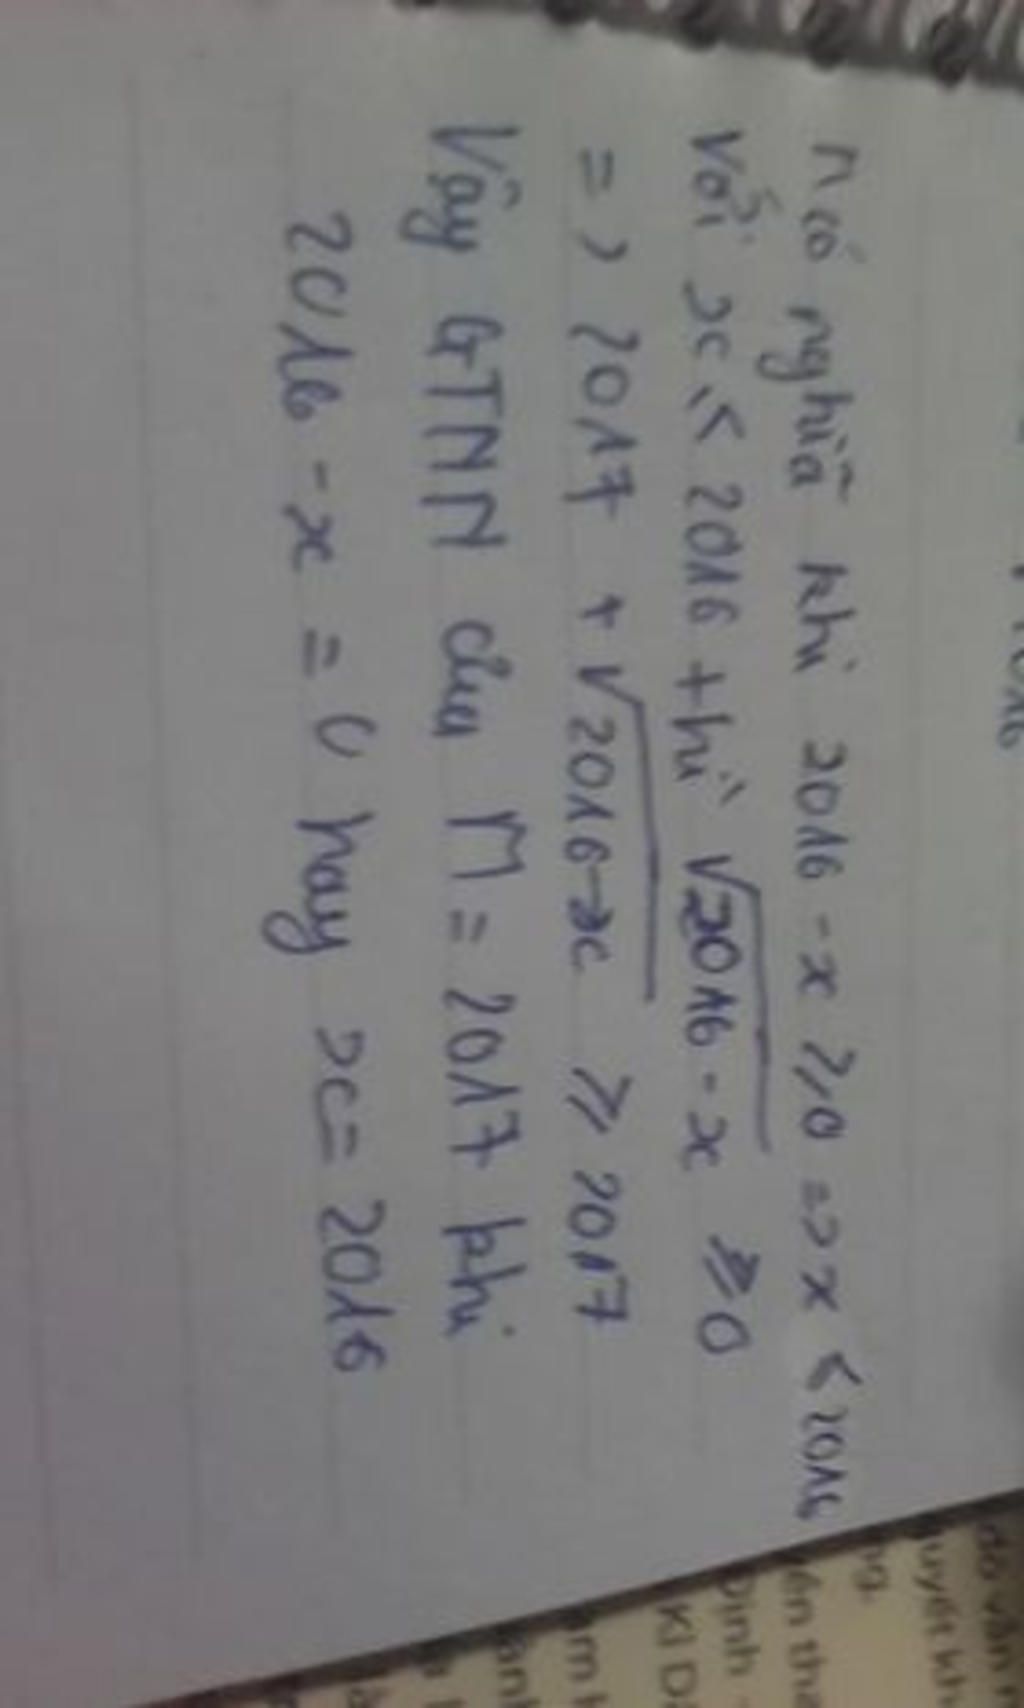 M có nghĩa khi 2016 - x ≥ 0 => x ≤ 2016
Với x ≤ 2016 thì √2016 - x ≥ 0
=> 2017 + √2016-x ≥ 2017
Vậy GTNN của M = 2017 khi
2016 - x = 0 hay x = 2016